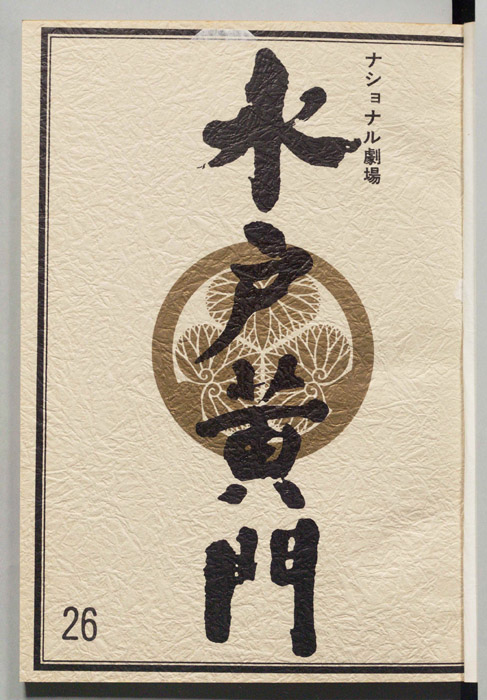 ナショナル劇場
水戸黄門
26